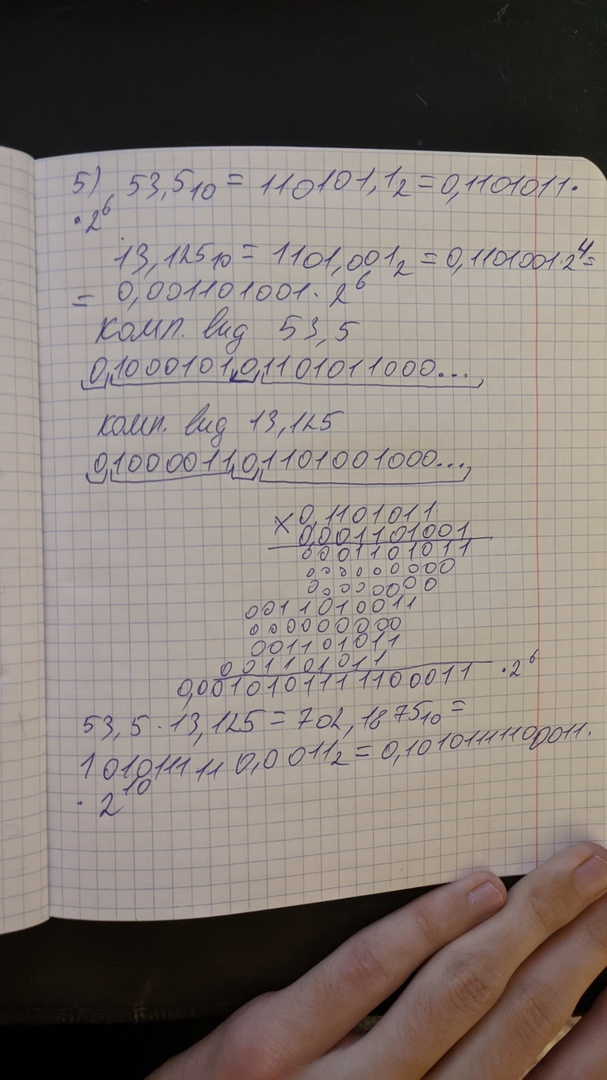 5) 53,5₁₀ = 110101,1₂ = 0,1101011·
·2⁶
13,125₁₀ = 1101,001₂ = 0,1101001·2⁴=
= 0,001101001·2⁶
комп. вид 53,5
0,1000101,0,1101011000...,
комп. вид 13,125
0,1000011,0,1101001000...,
× 0,1101011
0,001101001
0001101011
000000000
0000000
0011010011
000000000
001101011
001101011
0,001010111111100011 ·2⁶
53,5·13,125 = 702,1875₁₀ =
1010111110,0011₂ = 0,10101111100011·
·2¹⁰